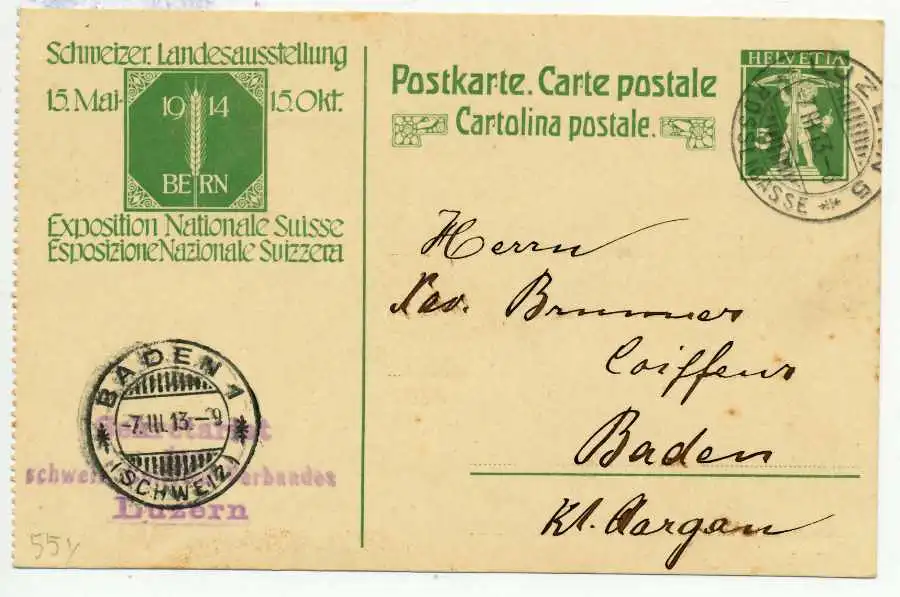 Schweizer. Landesausstellung
15. Mai- 15. Okt.
19 14
BERN
Exposition Nationale Suisse
Esposizione Nazionale Svizzera
Postkarte. Carte postale
Cartolina postale.
HELVETIA
5
LUZERN 5
Herrn
Xav. Brunner
Coiffeur
Baden
Kt. Aargau
BADEN 1
-7. III. 13. -9
(SCHWEIZ)
Sekretariat
Luzern